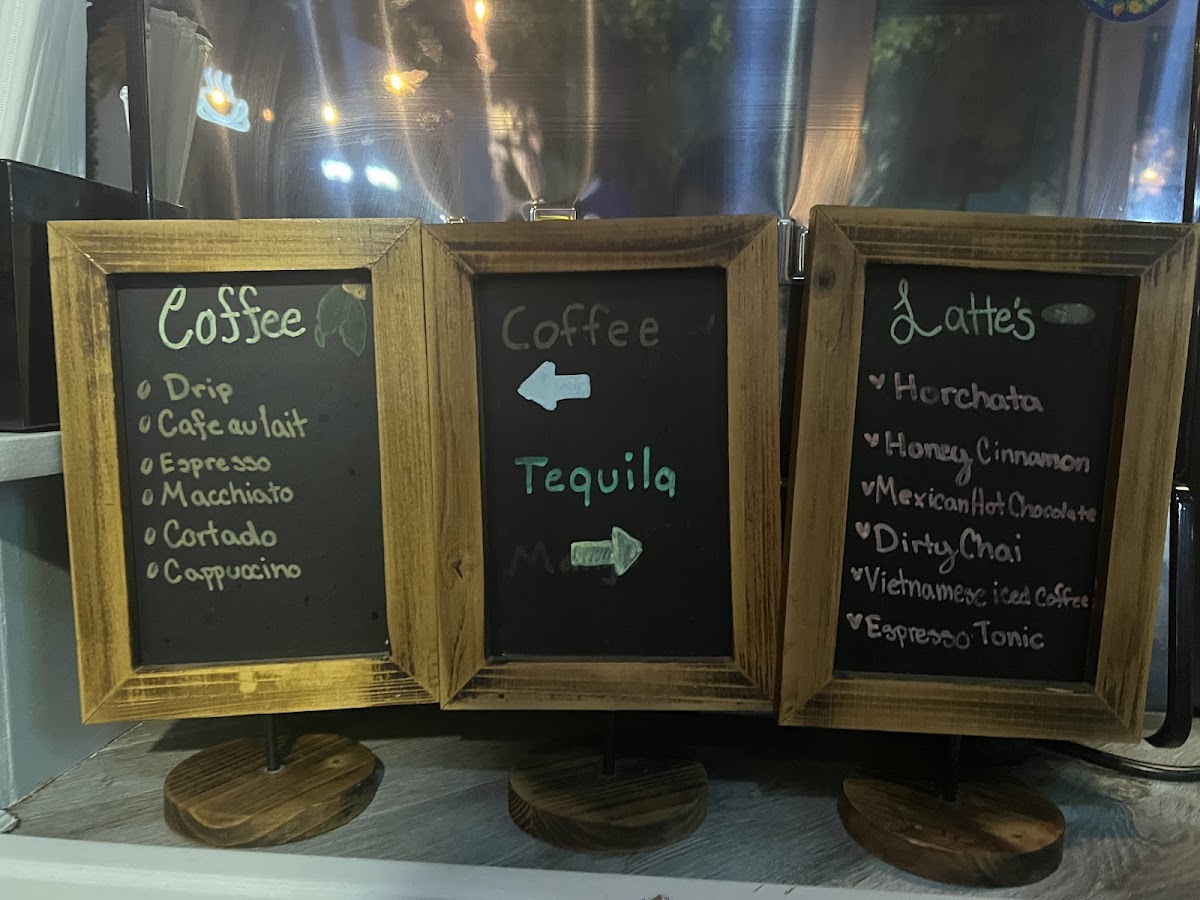 Coffee
Drip
Cafe au lait
Espresso
Macchiato
Cortado
Cappuccino
Coffee
Tequila
Latte's
Horchata
Honey Cinnamon
Mexican Hot Chocolate
Dirty Chai
Vietnamese iced Coffee
Espresso Tonic